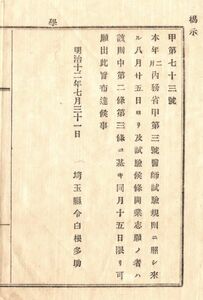 揭示
學
甲第七十三號
本年二月內務省甲第三號醫師試驗規則ニ照シ來
ル八月廿五日ヨリ及試驗候條開業志願ノ者ハ
該則中第二條第三條ニ基キ同月十五日限リ可
願出此旨布達候事
明治十二年七月三十一日
埼玉縣令白根多助